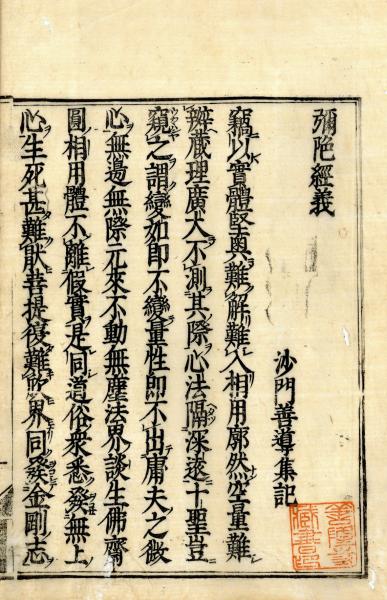 彌陀經義
沙門善導集記
竊以實體堅奧難解難入相用廓然空量難
辨蔵理廣大不測其際心法隔深遠十聖豈
窺之謂變如即不變量性即不出庸夫之微
心無邊無際元來不動無塵法界談生佛齋
圓相用體不離假實是同道俗衆悉發無上
心生死甚難猒菩提復難 界同發金剛志